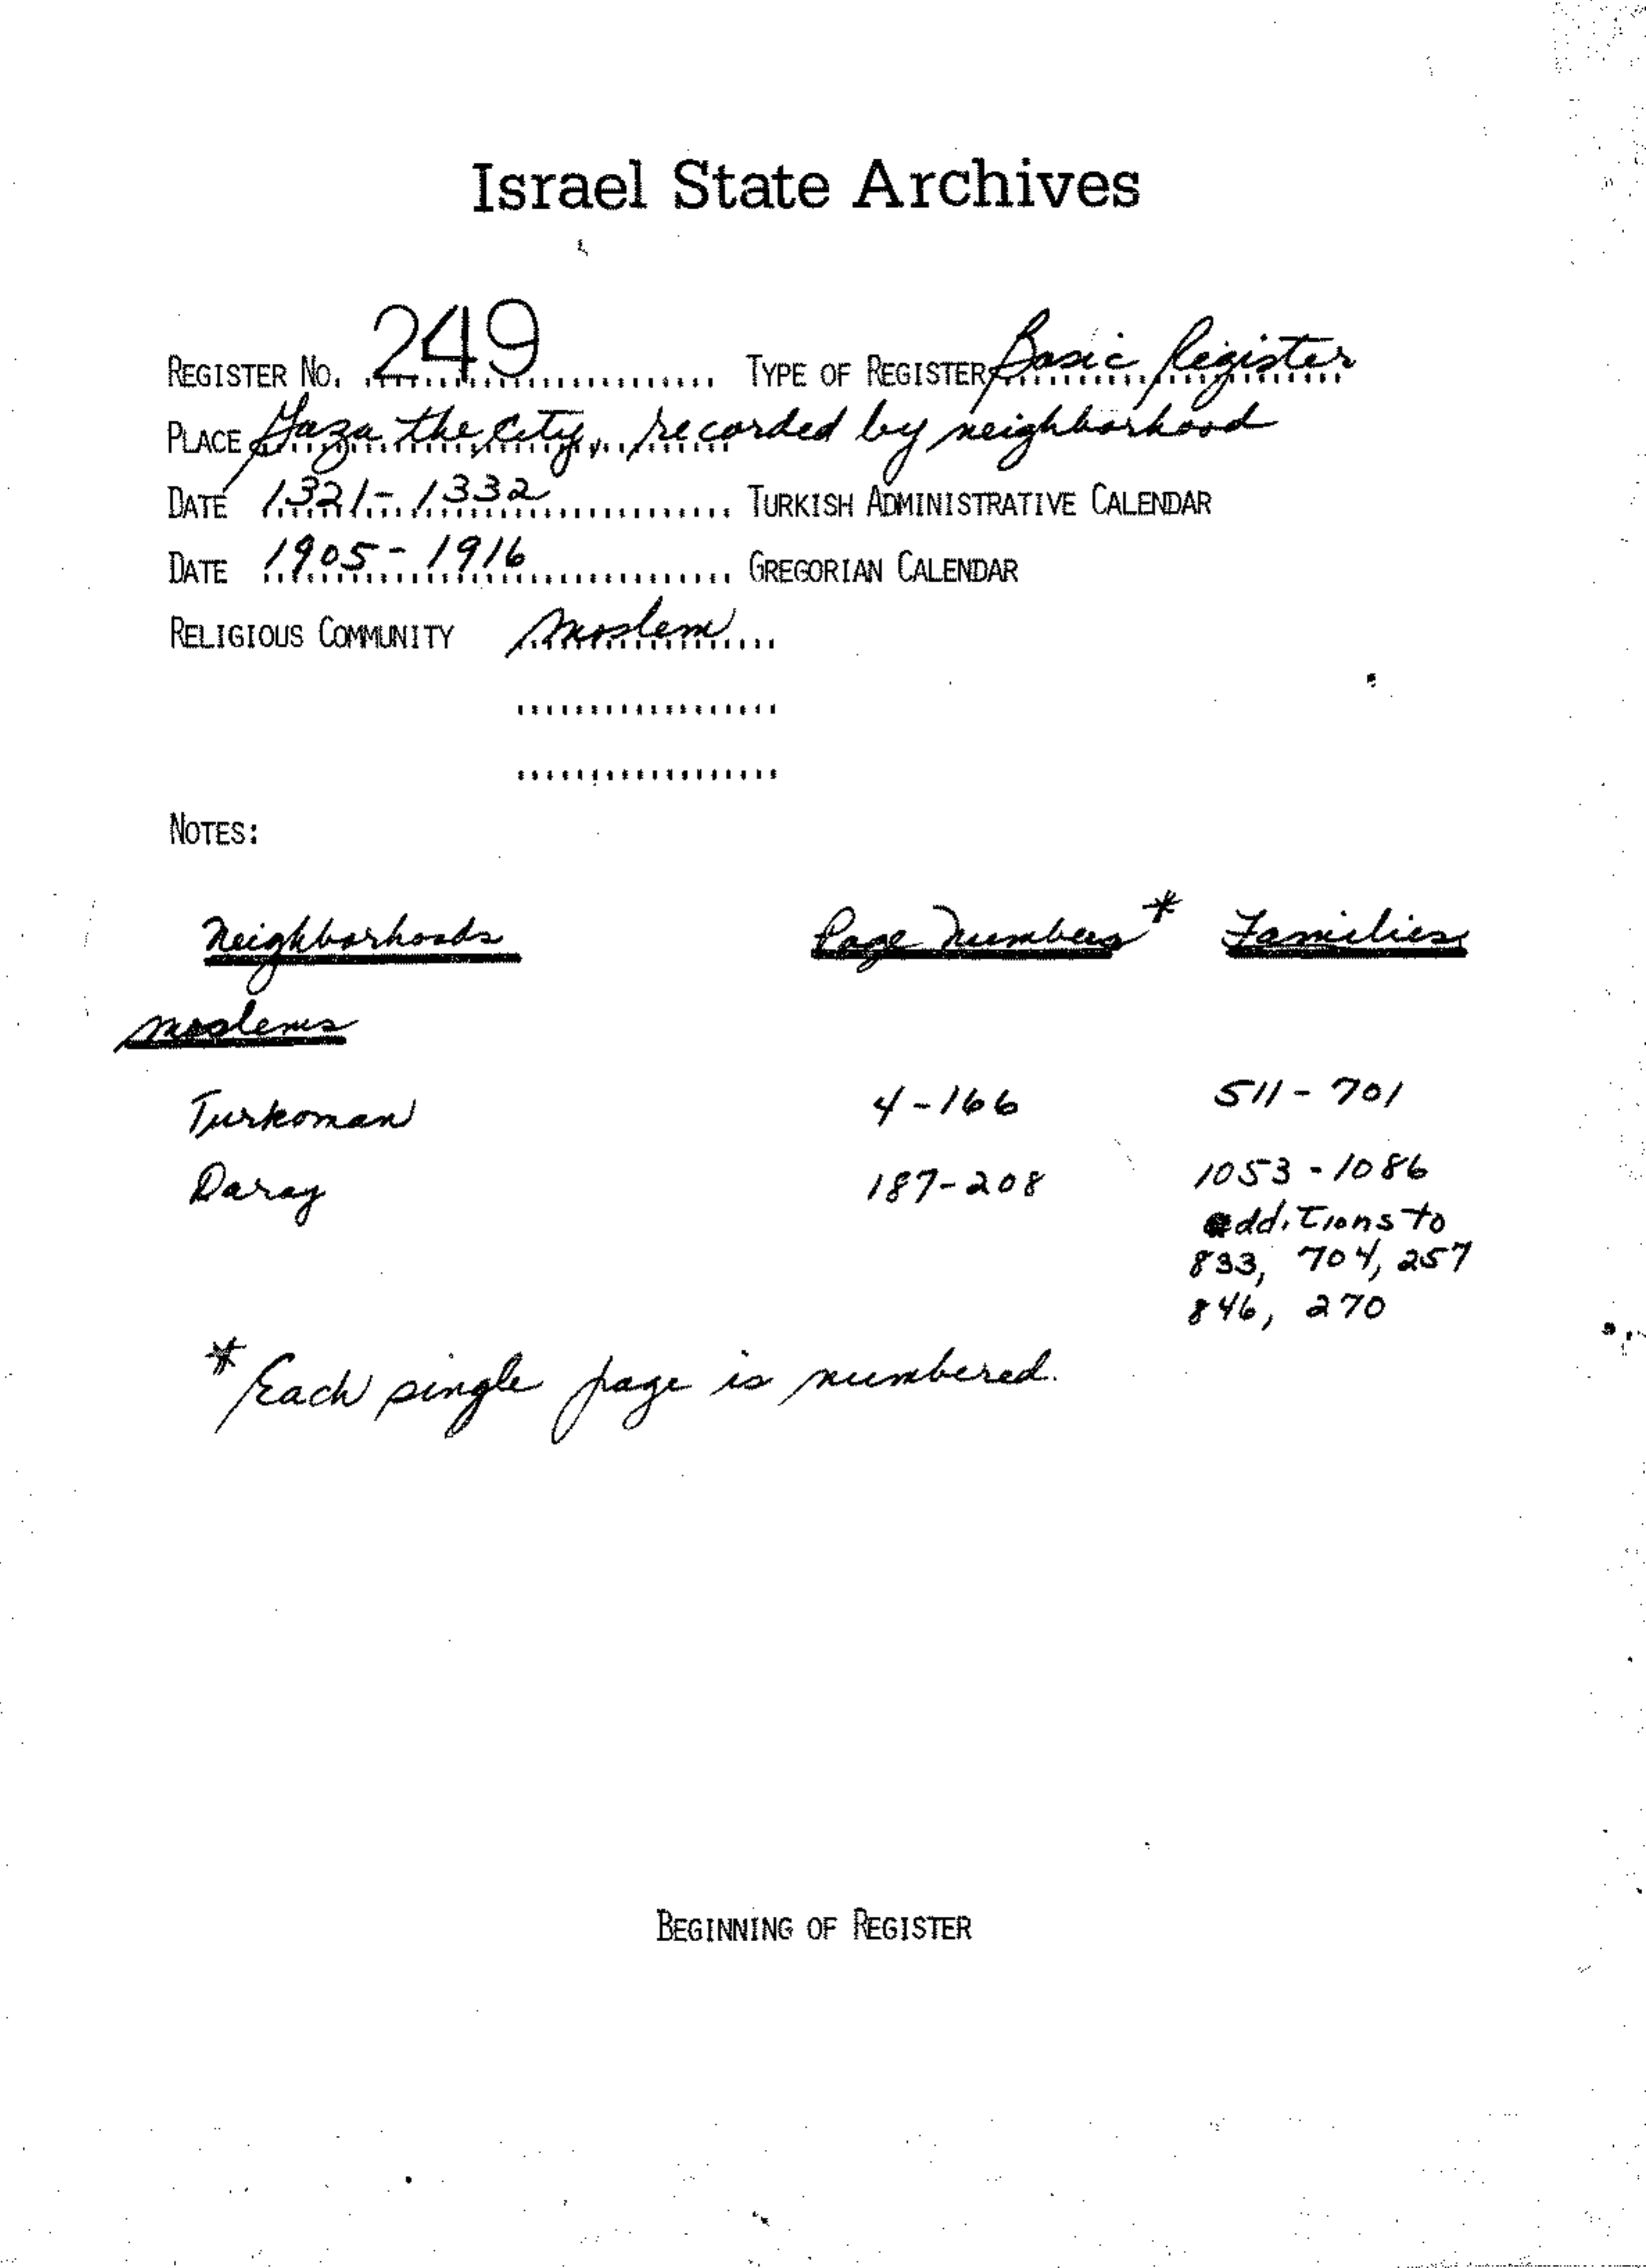 Israel State Archives
REGISTER NO. 249 TYPE OF REGISTER Basic Register
PLACE Gaza the City, recorded by neighborhood
DATE 1321-1332 TURKISH ADMINISTRATIVE CALENDAR
DATE 1905-1916 GREGORIAN CALENDAR
RELIGIOUS COMMUNITY Moslem
NOTES:
Neighborhoods Page Numbers* Families
Moslems
Turkoman 4-166 511-701
Daraj 187-208 1053-1086
additions to
833, 704, 257
846, 270
* Each single page is numbered.
BEGINNING OF REGISTER